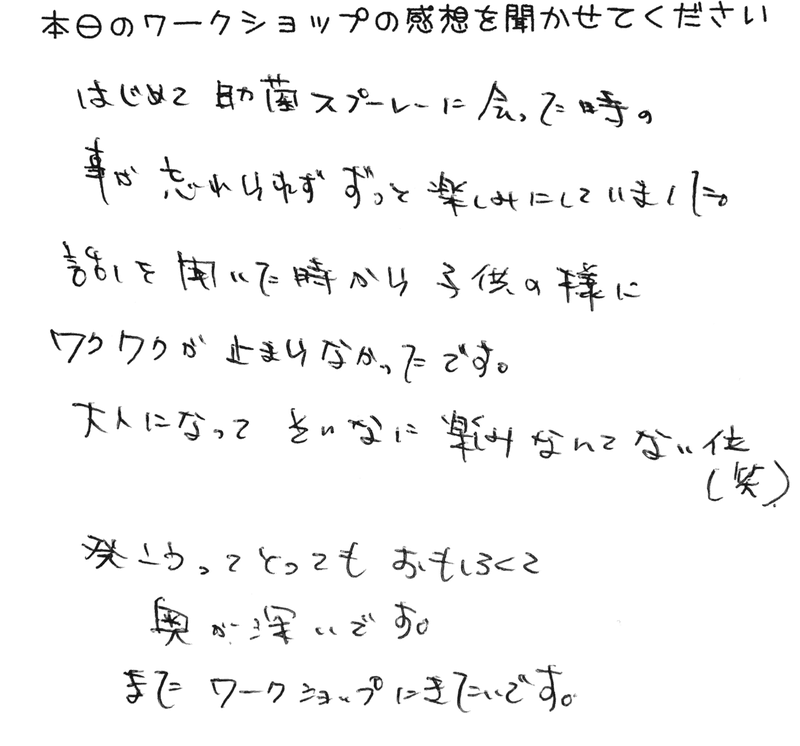 本日のワークショップの感想を聞かせてください
はじめて 助菌スプーレーに 会った時の
事が 忘れられず ずっと 楽しみにしていました。
話しを 聞いた時から 子供の様に
ワクワクが 止まらなかったです。
大人になって そんなに 楽しみなんてない位
(笑)
発こうってとっても おもしろくて
奥が深いです。
また ワークショップにきたいです。